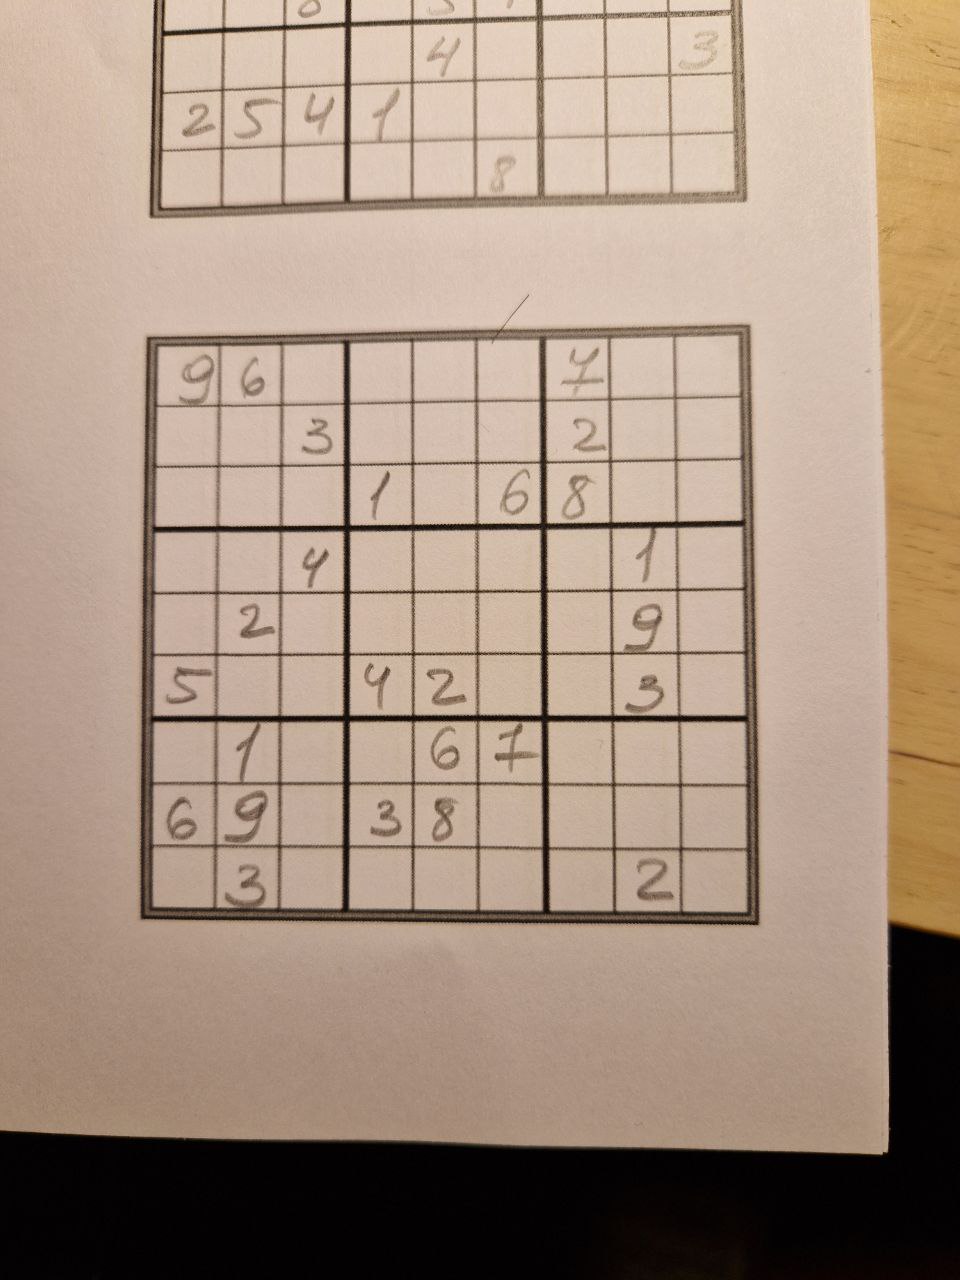 4 3
2 5 4 1
8
9 6 7
3 2
1 6 8
4 1
2 9
5 4 2 3
1 6 7
6 9 3 8
3 2